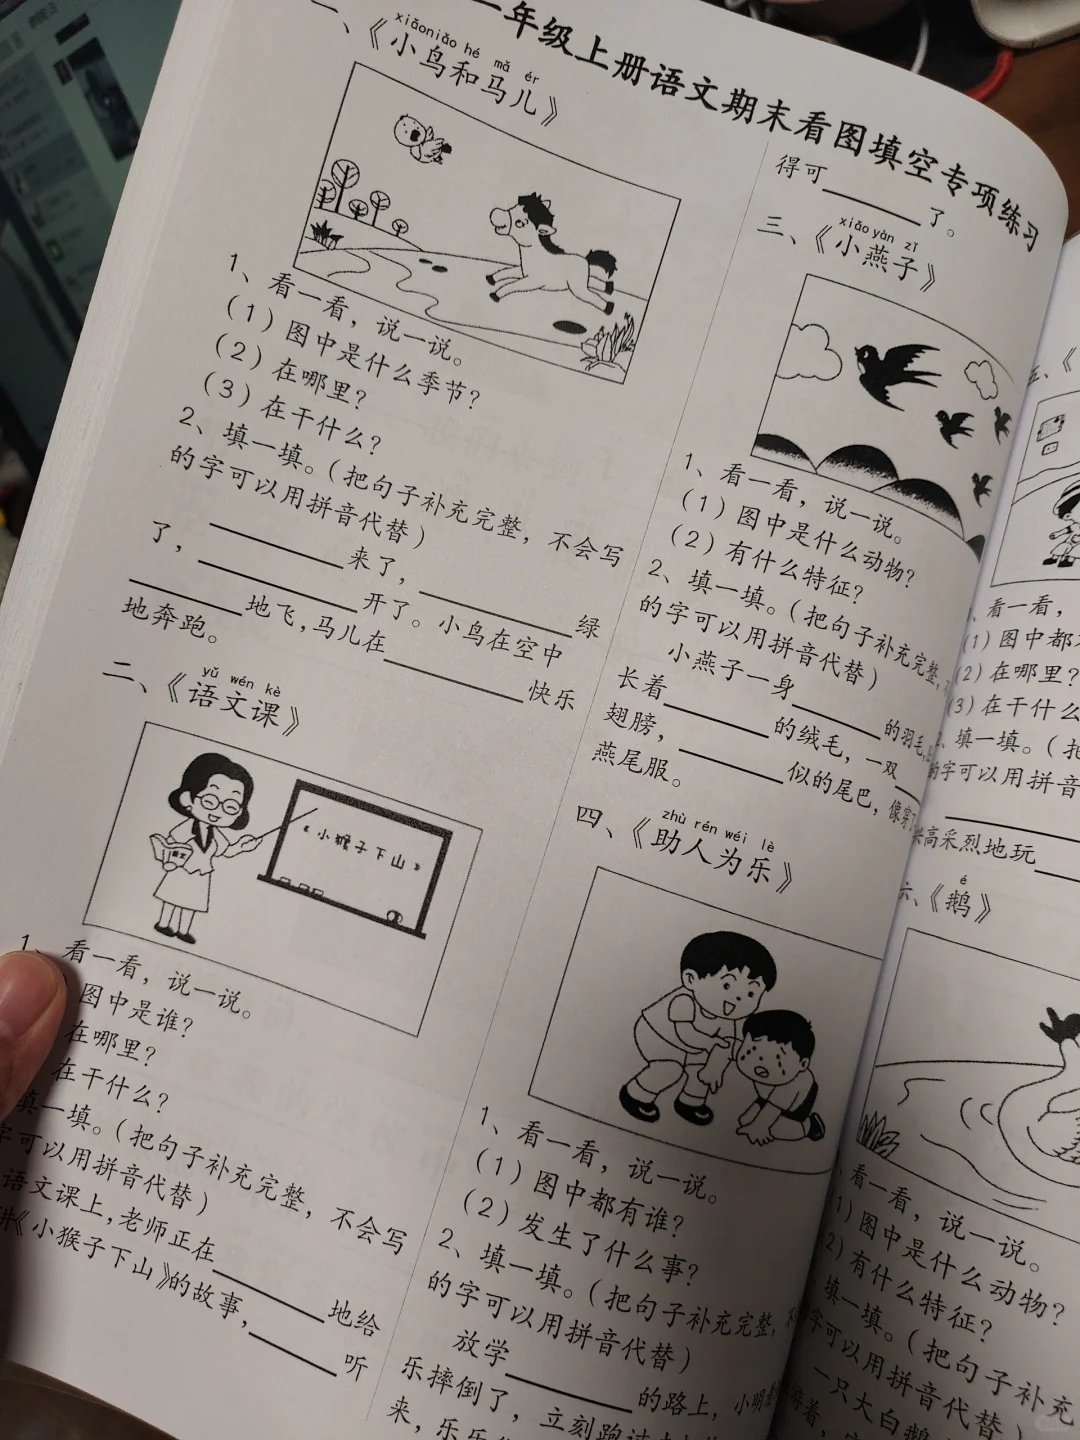 一年级上册语文期末看图填空专项练习
xiǎoniǎo hé mǎ ér
一、《小鸟和马儿》
1、看一看，说一说。
（1）图中是什么季节？
（2）在哪里？
（3）在干什么？
2、填一填。（把句子补充完整，不会写
的字可以用拼音代替）
来了，绿
了，开了。小鸟在空中
地飞，马儿在快乐
地奔跑。
yǔ wén kè
二、《语文课》
《小猴子下山》
1、看一看，说一说。
图中是谁？
在哪里？
在干什么？
填一填。（把句子补充完整，不会写
字可以用拼音代替）
语文课上，老师正在地给
讲《小猴子下山》的故事，听
得可了。
xiǎo yàn zǐ
三、《小燕子》
1、看一看，说一说。
（1）图中是什么动物？
（2）有什么特征？
2、填一填。（把句子补充完整，
的字可以用拼音代替）
小燕子一身的羽毛，
长着的绒毛，一双
翅膀，似的尾巴，像穿了
燕尾服。
zhù rén wéi lè
四、《助人为乐》
1、看一看，说一说。
（1）图中都有谁？
（2）发生了什么事？
2、填一填。（把句子补充完整，不
的字可以用拼音代替）
放学的路上，小明
乐摔倒了，立刻跑过
来，乐乐
五、《
看一看，
（1）图中都
（2）在哪里？
（3）在干什么
、填一填。（把
的字可以用拼音
兴高采烈地玩
é
六、《鹅》
、看一看，说一说。
1）图中是什么动物？
2）有什么特征？
、填一填。（把句子补充
字可以用拼音代替）
一只大白鹅